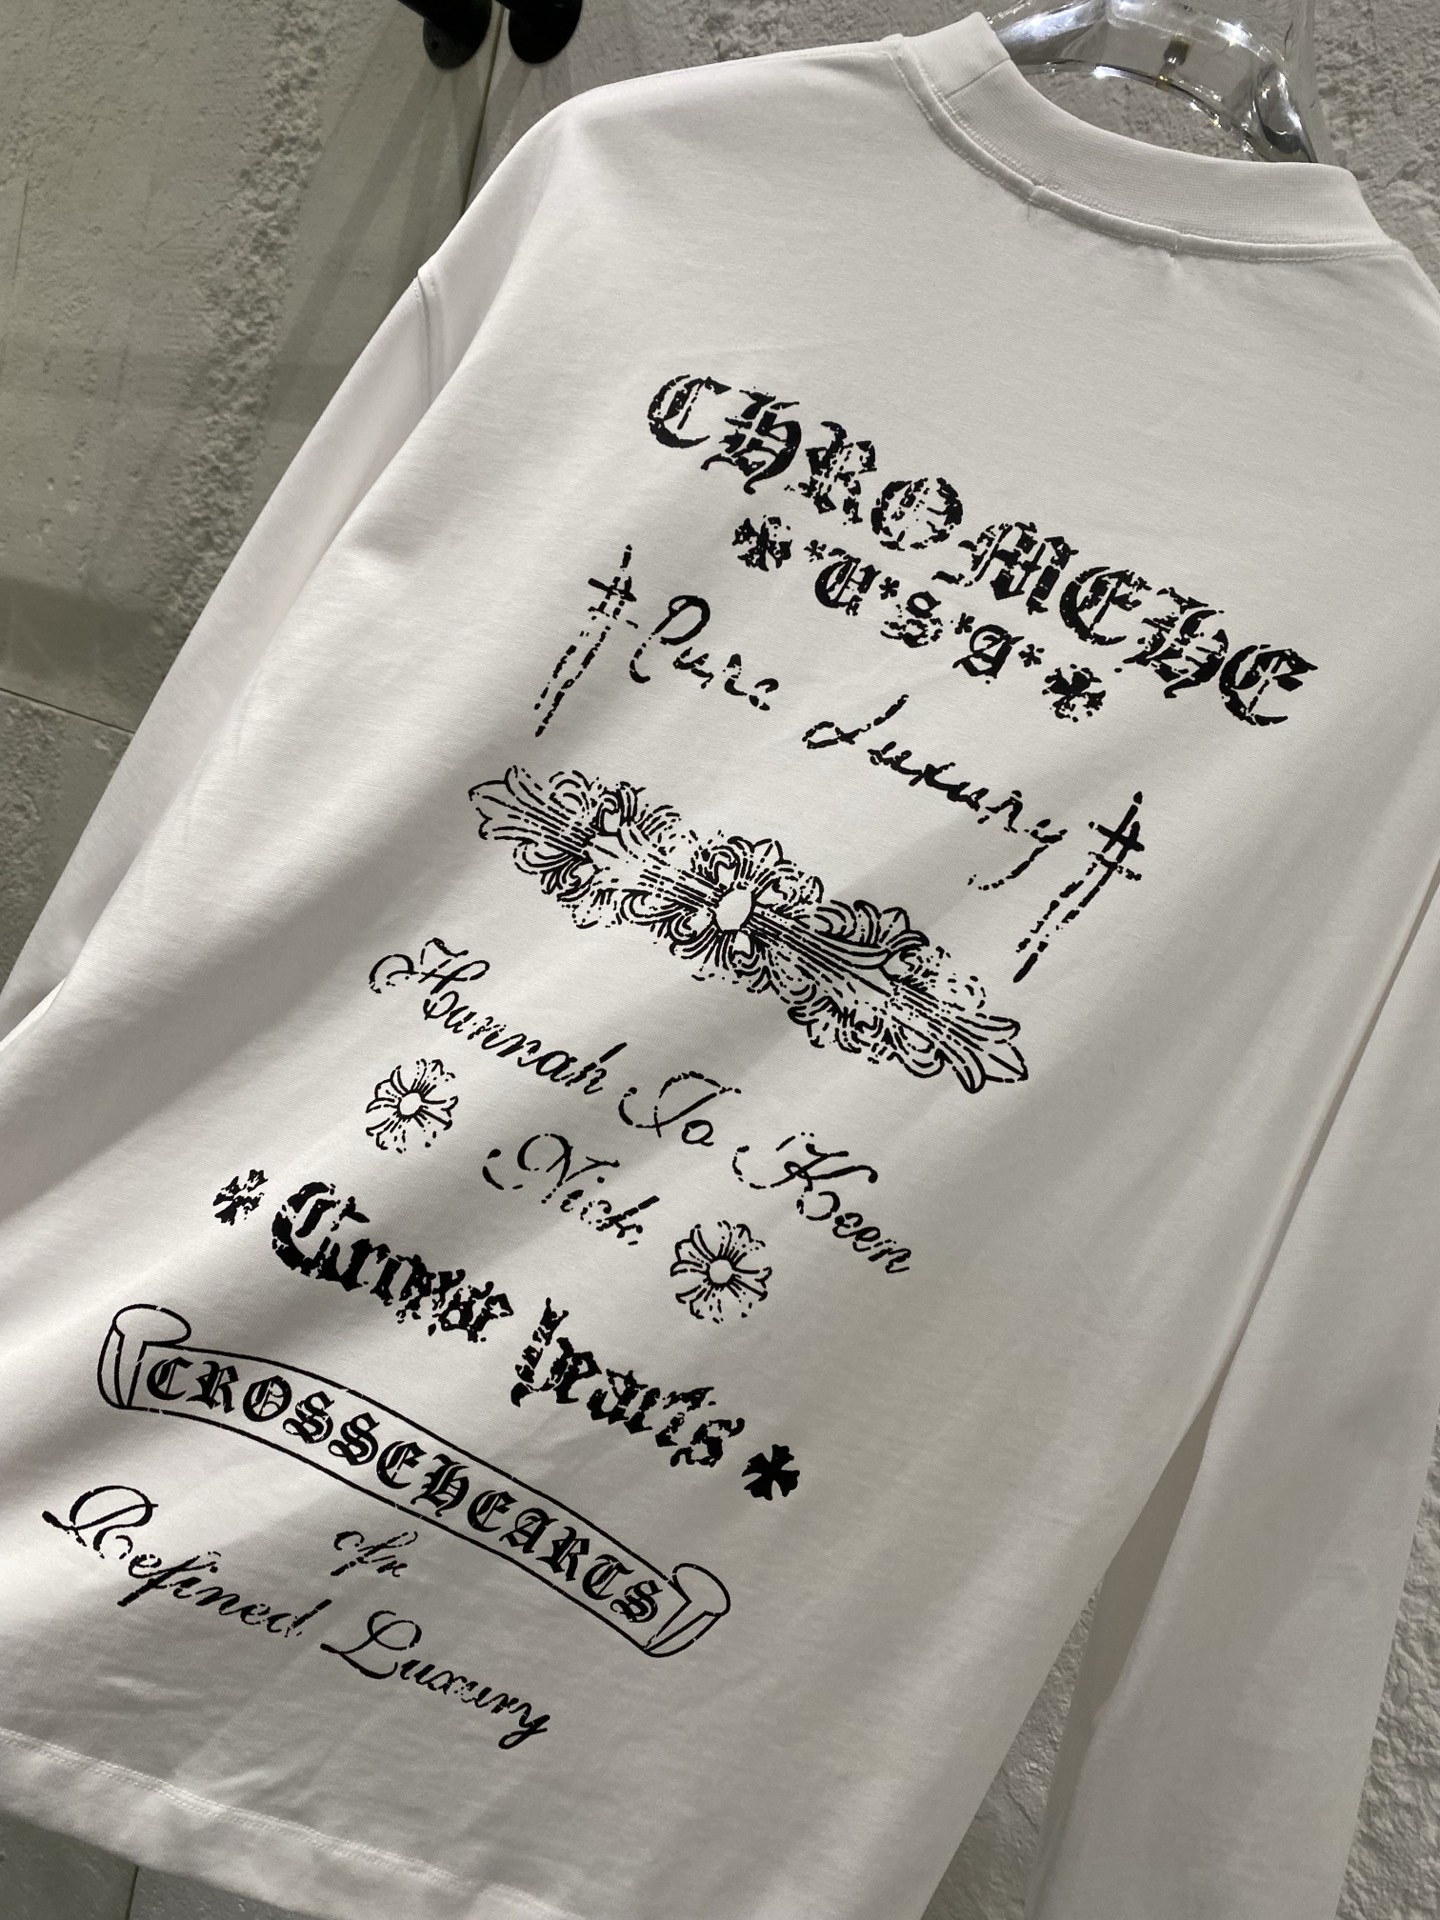 CHROMEHE
*U*S*A*
Pure Luxury
Hannah To Keen
Nick.
Crosse hearts
CROSSEHEARTS
of
Refined Luxury